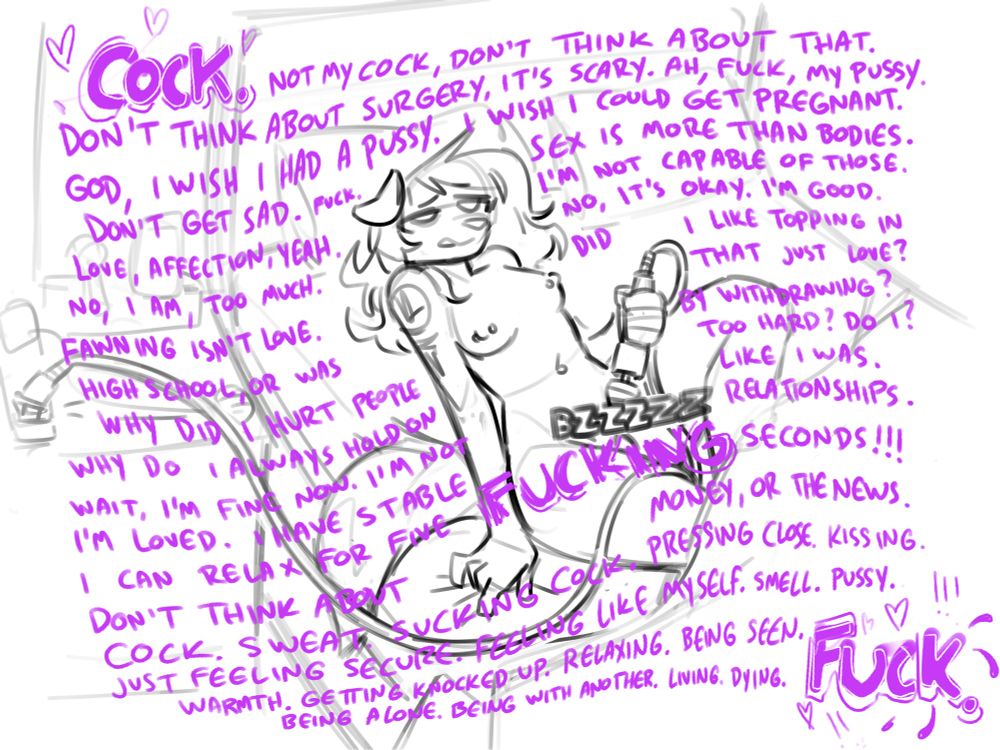 COCK. NOT MY COCK, DON'T THINK ABOUT THAT.
DON'T THINK ABOUT SURGERY, IT'S SCARY. AH, FUCK, MY PUSSY.
GOD, I WISH I HAD A PUSSY. I WISH I COULD GET PREGNANT.
DON'T GET SAD. FUCK. SEX IS MORE THAN BODIES.
LOVE, AFFECTION, YEAH. I'M NOT CAPABLE OF THOSE.
NO, I AM, TOO MUCH. NO, IT'S OKAY. I'M GOOD.
FAWNING ISN'T LOVE. DID I LIKE TOPPING IN
HIGH SCHOOL, OR WAS THAT JUST LOVE?
WHY DID I HURT PEOPLE BY WITHDRAWING?
WHY DO I ALWAYS HOLD ON TOO HARD? DO I?
WAIT, I'M FINE NOW. I'M NOT LIKE I WAS.
I'M LOVED. I HAVE STABLE RELATIONSHIPS.
BZZZZZ
I CAN RELAX FOR FIVE FUCKING SECONDS!!!
DON'T THINK ABOUT MONEY, OR THE NEWS.
COCK. SWEAT. SUCKING COCK. PRESSING CLOSE. KISSING.
JUST FEELING SECURE. FEELING LIKE MYSELF. SMELL. PUSSY.
WARMTH. GETTING KNOCKED UP. RELAXING. BEING SEEN.
BEING ALONE. BEING WITH ANOTHER. LIVING. DYING.
!!!
FUCK.
!!